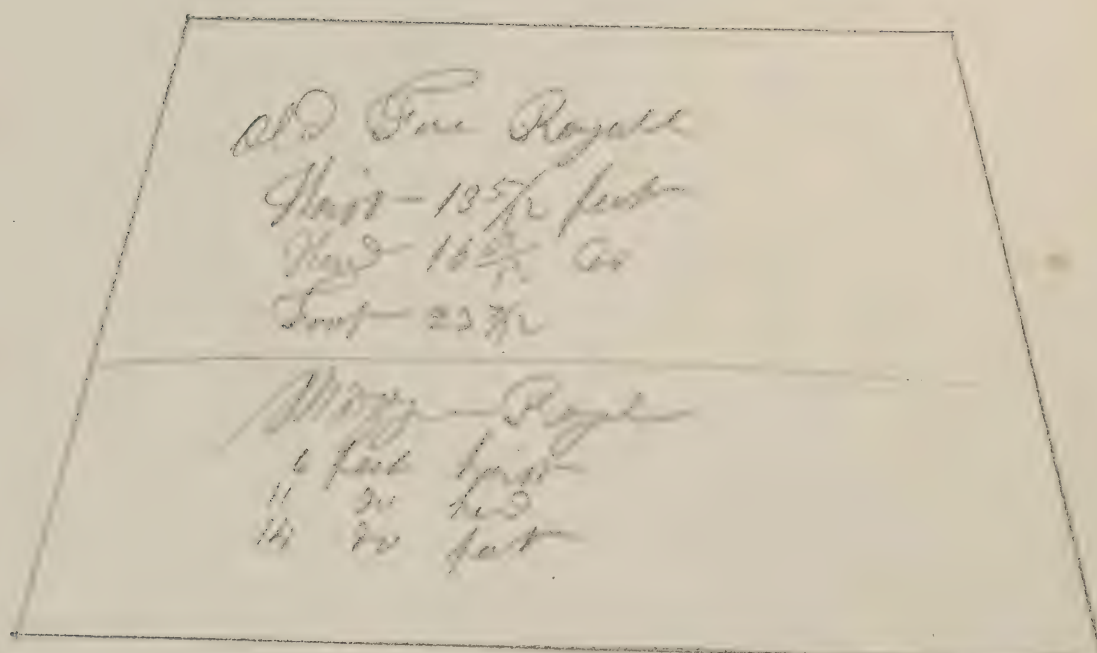 Old Fore Royall
Hoist - 13 5/12 feet
Head 16 /12 Do
Foot - 23 7/12
Mizzen Royal
feet hoist
11 Do hed
14 Do foot